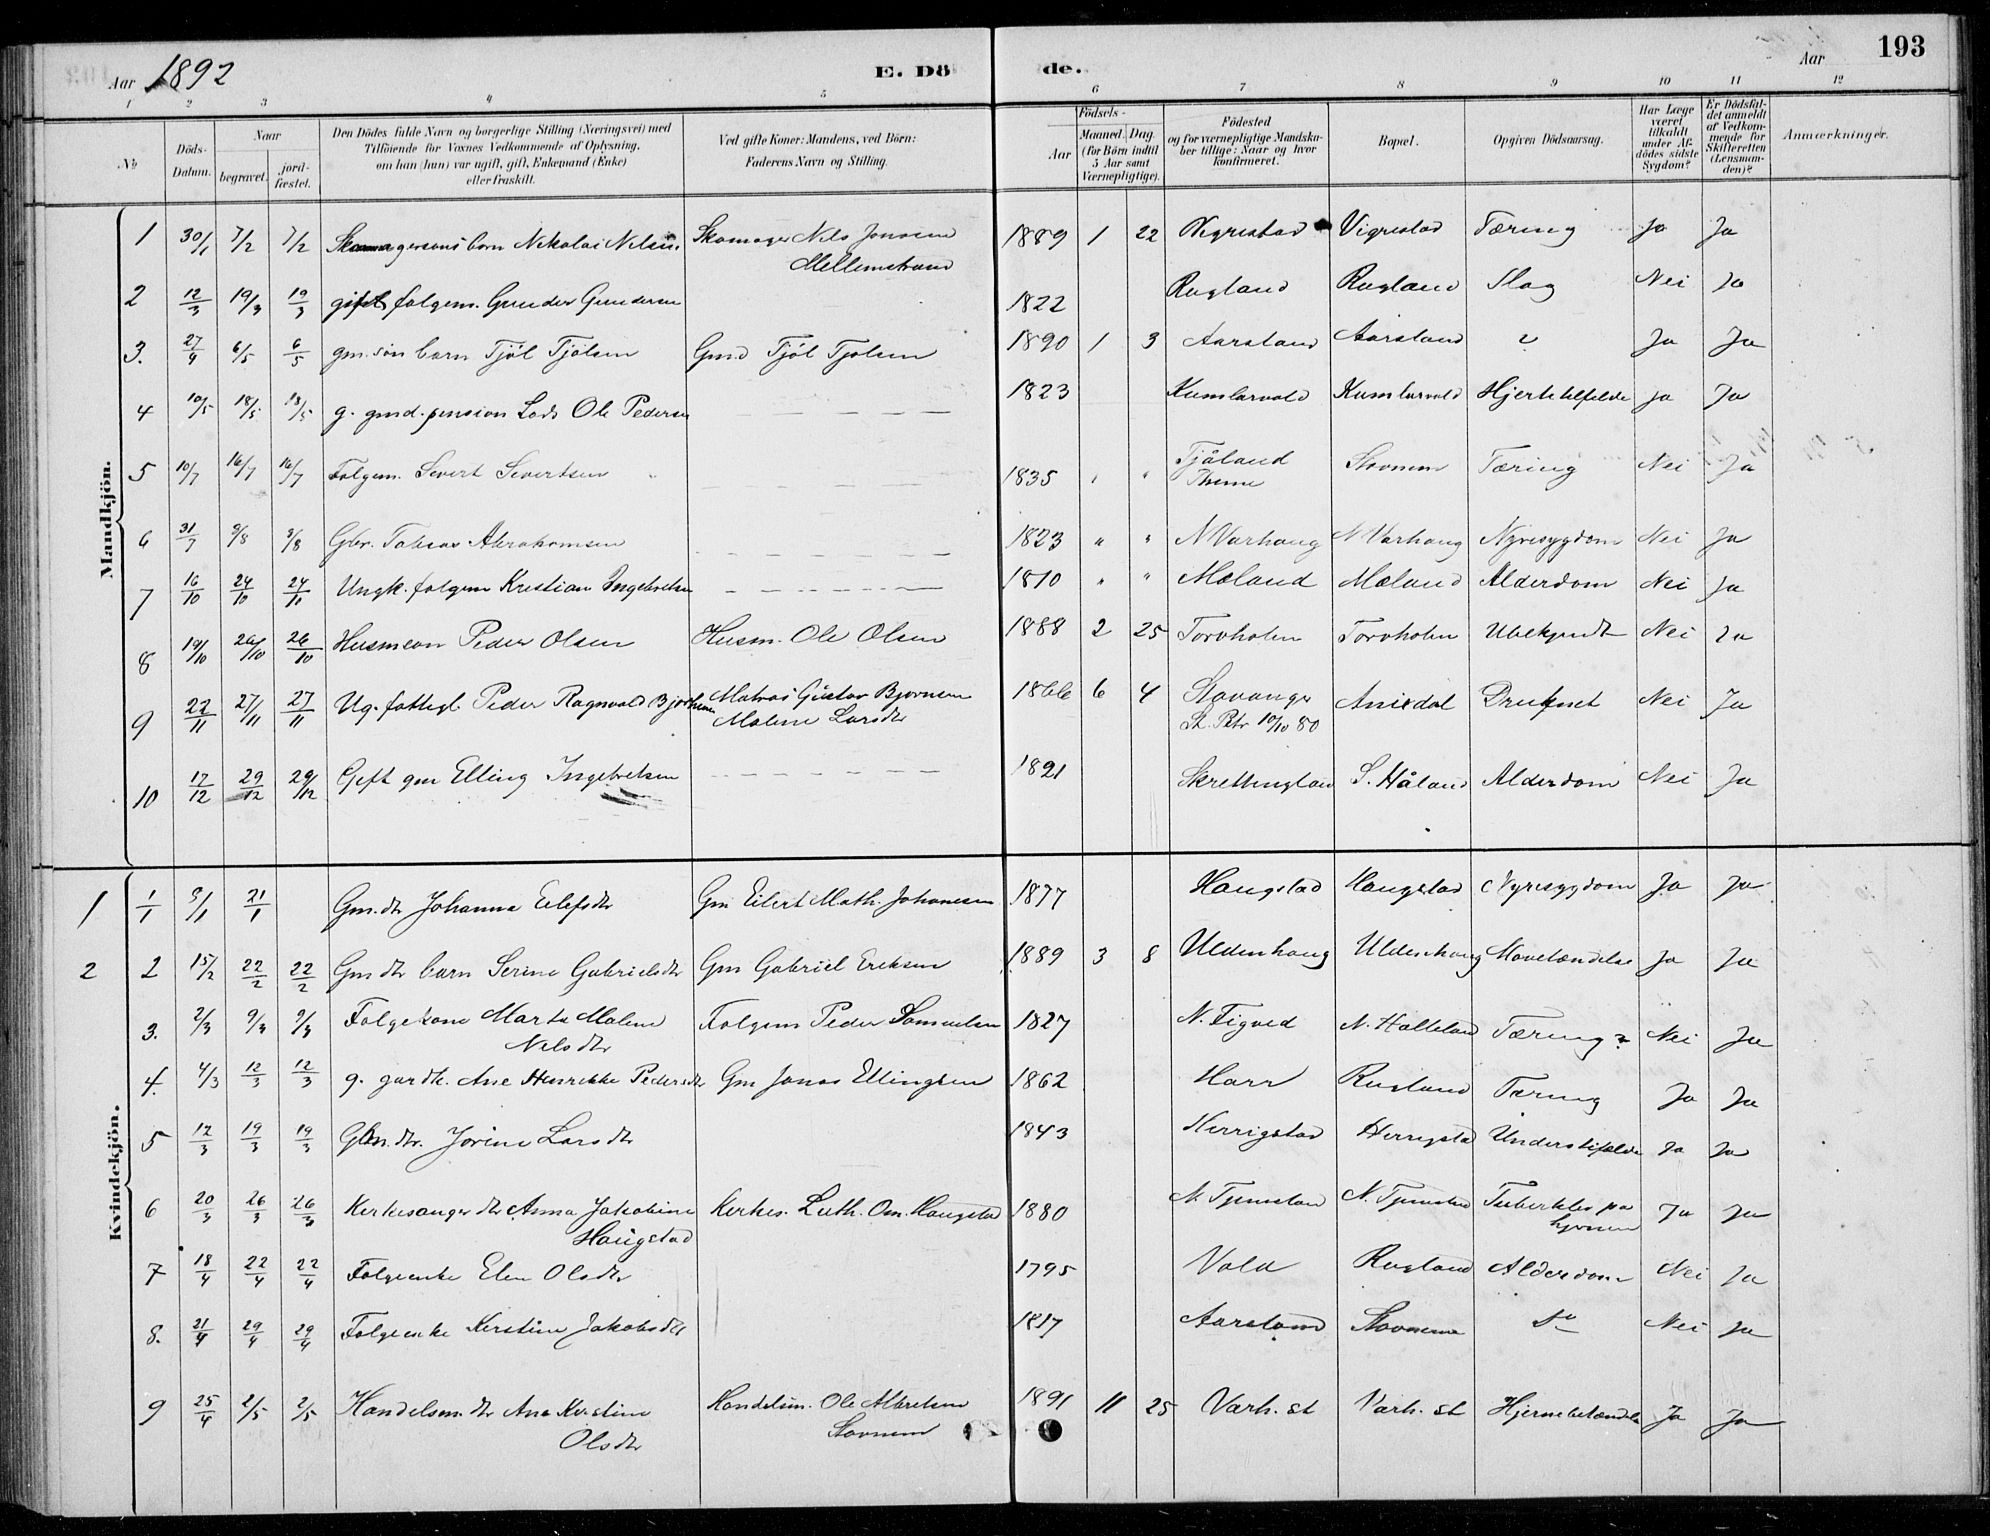 Aar 1892
E. Dö
de.
Aar
193
1 2 3 4 5 6 7 8 9 10 11 12
No
Döds-Datum.
Naar
begravet.
jord-fæstet.
Den Dödes fulde Navn og borgerlige Stilling (Næringsvei) med Tilföiende for Voxnes Vedkommende af Oplysning, om han (hun) var ugift, gift, Enkemand (Enke) eller fraskilt.
Ved gifte Koner: Mandens, ved Börn: Faderens Navn og Stilling.
Födsels-
Aar
Maaned. Dag.
(for Börn indtil 5 Aar samt Værnepligtige).
Födested og for værnepligtige Mandska-ber tillige: Naar og hvor konfirmeret.
Bopæl.
Opgiven Dödsaarsag.
Har Læge været tilkaldt under Af-dödes sidste Sygdom?
Er Dödsfal-det anmeldt af Vedkom-mende for Skifteretten (Lensman-den)?
Anmærkninger.
Mandkjön.
1 30/1 7/2 7/2 Skomagersøns barn Nikolai Nilsen Skomager Nils Jonsen Mellemstrand 1889 1 22 Vigrestad Vigrestad Tæring Ja Ja
2 12/3 19/3 19/3 gift folgem. Gunder Gundersen 1822 Rugland Rugland Slag Nei Ja
3. 27/4 6/5 6/5 gm. søn barn Tjöl Tjölsen Gmd Tjöl Tjølsen 1890 1 3 Aarsland Aarsland ? Ja Ja
4 10/5 18/5 18/5 g. gmd. pension Lods Ole Pedersen — — — 1823 Kumlevold Kumlevold Hjertetilfelde Ja Ja
5 10/7 16/7 16/7 Folgem. Severt Severtsen — — — 1835 " " Tjåland Thime Stovnem Tæring Nei Ja
6 31/7 9/8 9/8 Gbr. Tobias Abrahamsen — — — 1823 " " N Varhaug N Varhaug Nyresygdom Nei Ja
7 16/10 24/10 24/10 Ungk. folgem Kristian Ingebretsen — — — 1810 " " Mæland Mæland Alderdom Nei Ja
8 19/10 26/10 26/10 Husmson Peder Olsen Husm. Ole Olsen 1888 2 25 Torvholen Torvholen Ubekjendt Nei Ja
9 22/11 27/11 27/11 Ug. fattigl. Peder Ragnvald Bjørnsen Matros Gustav Bjørnsen Malene Larsdtr 1866 6 4 Stavanger St. Petr 10/10 80 Anisdal Druknet Nei Ja
10 17/12 29/12 29/12 Gift gm Elling Ingebretsen — — — 1821 Skrettingland S. Håland Alderdom Nei Ja
Kvindekjön.
1 1/1 9/1 21/1 Gm. dtr Johanna Eilefsdtr Gm Eilert Math. Johannesen 1877 Haugstad Haugstad Nyresygdom Ja Ja
2 2 15/2 22/2 22/2 Gm dtr barn Serine Gabrielsdtr Gm Gabriel Eriksen 1889 3 8 Uldenhaug Uldenhaug Mavetændelse Ja Ja
3. 2/3 9/3 9/3 Folgekone Marta Malene Nilsdtr Folgem Peder Samuelsen 1827 N. Figved N. Halleland Tæring? Nei Ja
4. 4/3 12/3 12/3 g. gardk. Ane Henrikke Pedersdtr Gm Jonas Ellingsen 1862 Harr Rugland Tæring Ja Ja
5 12/3 19/3 19/3 Gbm. dtr. Jorine Larsdtr 1843 Herrigstad Herrigstad Ja Ja
6 20/3 26/3 26/3 Kirkesanger dtr Anna Jakobine Haugstad Kirkes. Luth. Om. Haugstad 1880 N. Tjemsland N. Tjemsland Tuberkler på hjernen Ja Ja
7 18/4 22/4 22/4 Folgeenke Elen Olsdtr 1795 Vold Rugland Alderdom Nei Ja
8. 21/4 29/4 29/4 Folgeenke Kirstine Jakobsdtr 1817 Aarsland Stovnem do Nei Ja
9 25/4 2/5 2/5 Handelsm. dtr Ane Kirstine Olsdtr Handelsm. Ole Albretsen Stovnem 1891 11 25 Varh. st Varh. st Hjernebetændelse Ja Ja